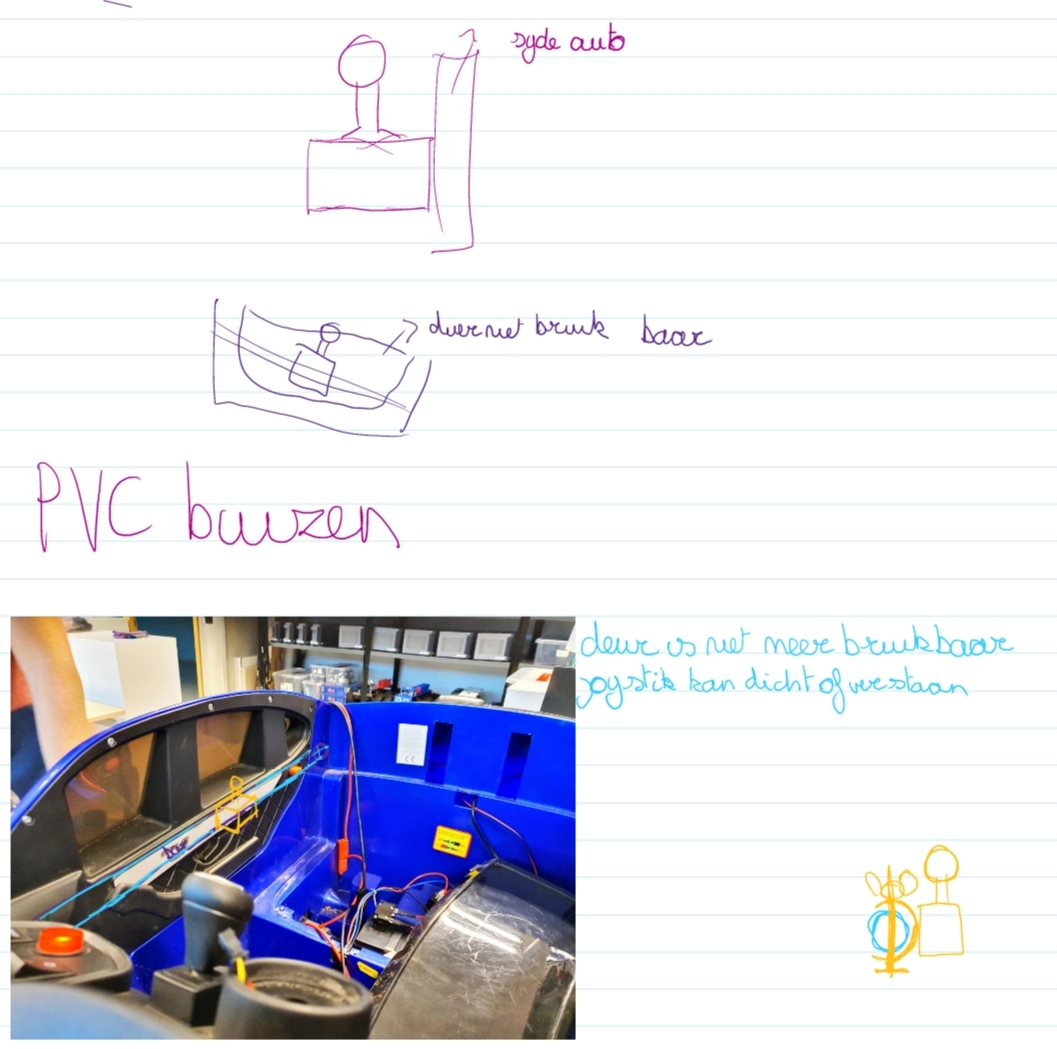 syde auto
duer niet bruik baar
PVC buizen
deur is niet meer bruikbaar
joystik kan dicht of ver staan